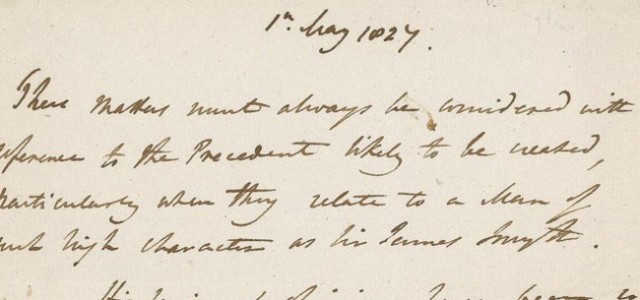 1st May 1827.
These matters must always be considered with
reference to the Precedent likely to be created,
particularly when they relate to a Man of
such high character as Sir James Smyth.